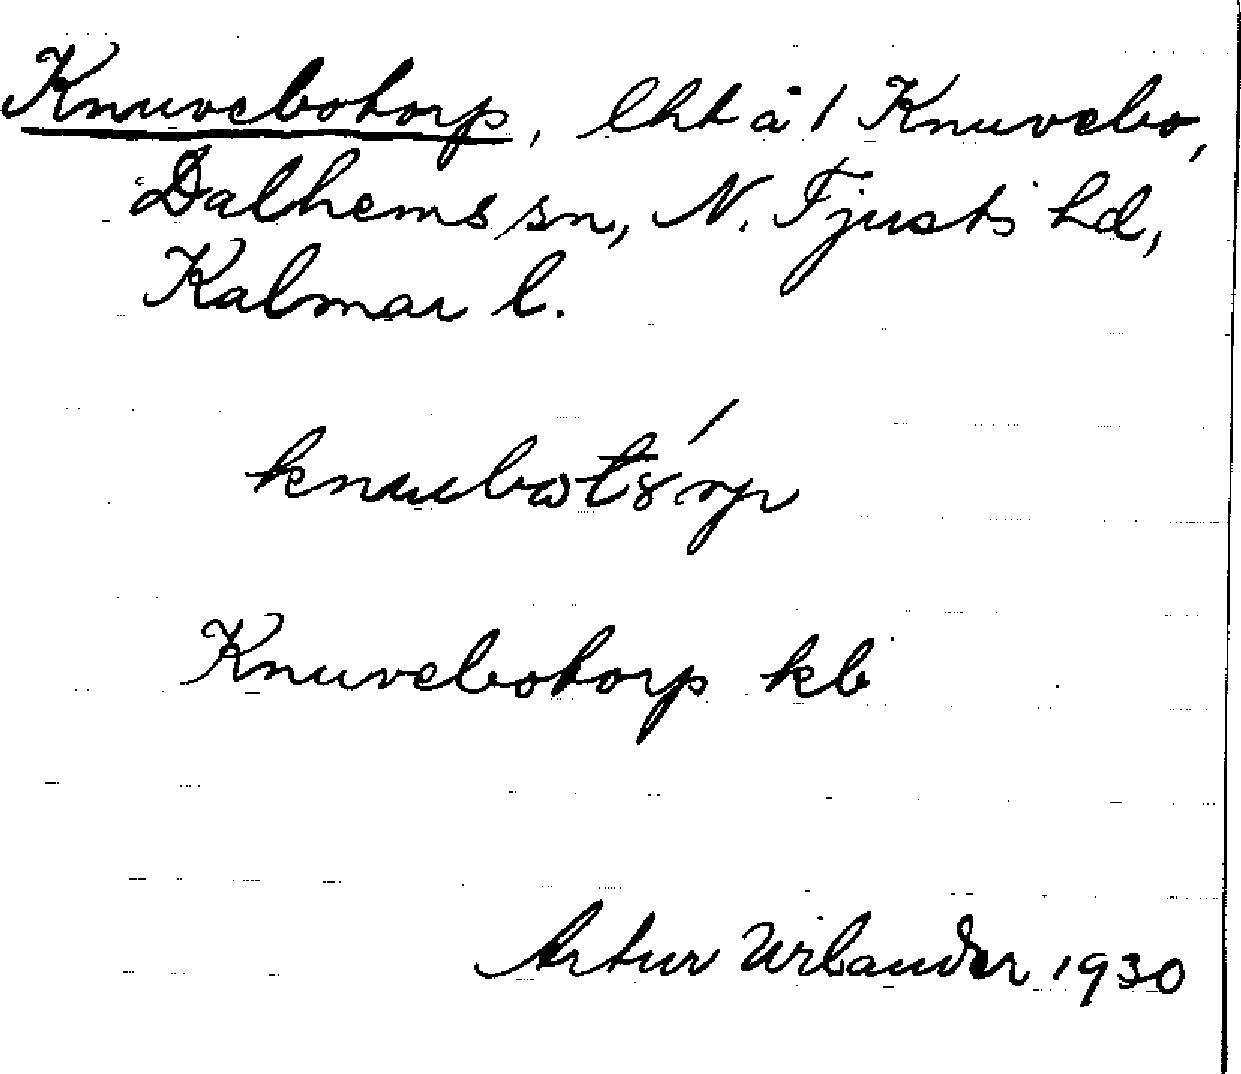 Knuvebotorp, lht å 1 Knuvebo,
Dalhems sn, N. Tjusts hd,
Kalmar l.
Knuvebotorp kb
Artur Wilander 1930